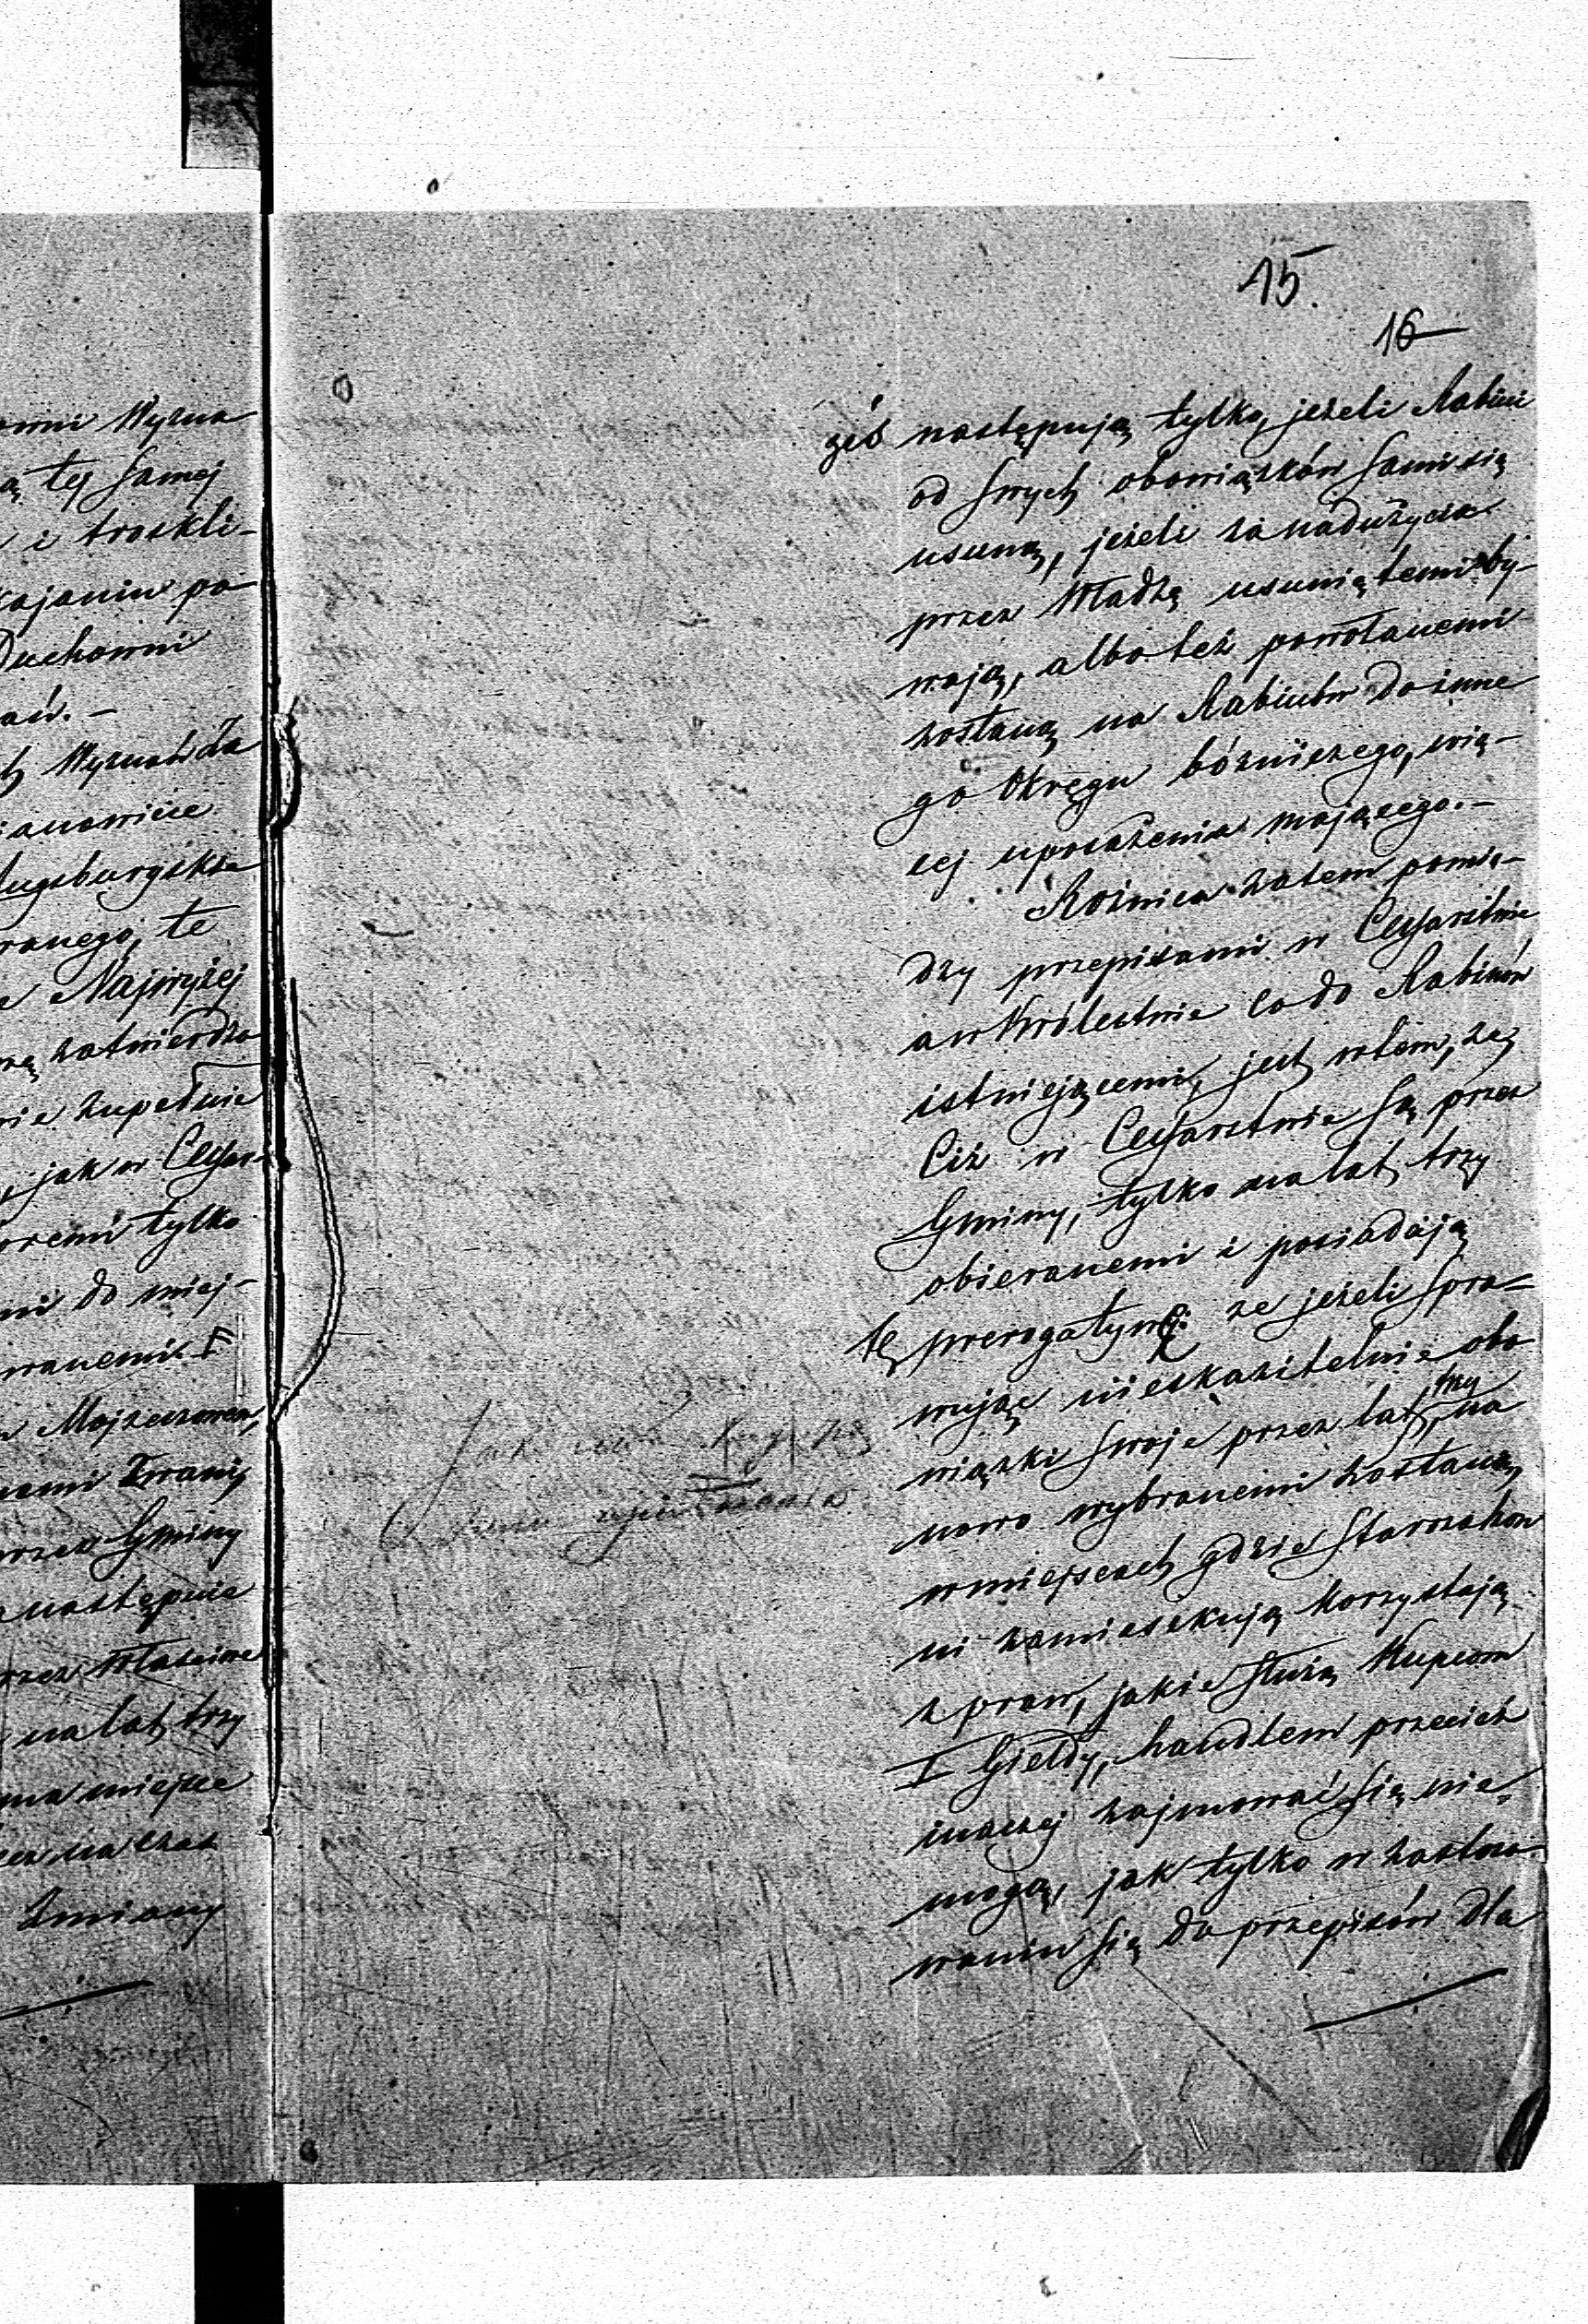 omni Wyzna
ą tej samej
i troskli-
kajaniu po
Duchowni
ań. –
h Wyznań za
ianowicie
Augsburgskie
ranego, te
Najwyżej
zatwierdza
nie zupełnie
, jak w Cesar-
oremi tylko
ni do miej-
wanemi.
Mojżeszowem,
nemi zwani,
przez Gminy
następnie
rzez Właściwe
na lat trzy
na miejsce
lecz na czas
zmiany
15.
16
zéś następują tylko, jeżeli Rabini
od swych obowiązków sami się
usuną, jeżeli za nadużycia
przez Władzę usuniętemi by-
wają, albo też powołanemi
zostaną na Rabinów do inne
go Okręgu bóżniczego, wię-
cej uposażenia mającego. –
Różnica zatem pomię-
dzy przepisami w Cesarstwie
a w Królestwie co do Rabinów
istniejącemi, jest w tem, że
Ciż w Cesarstwie są przez
Gminy, tylko na lat trzy
obieranemi i posiadają
tę prerogatywę że jeżeli spra=
wując nieskazitelnie obo
wiązki swoje przez lat trzy, na
nowo wybranemi zostaną,
w miejscach gdzie Starozakon
ni zamieszkują korzystają
z praw, jakie służą Kupcom
I Giełdy, handlem przecież
inaczej zajmować się nie
mogą, jak tylko w zastoso-
waniu się do przepisów dla